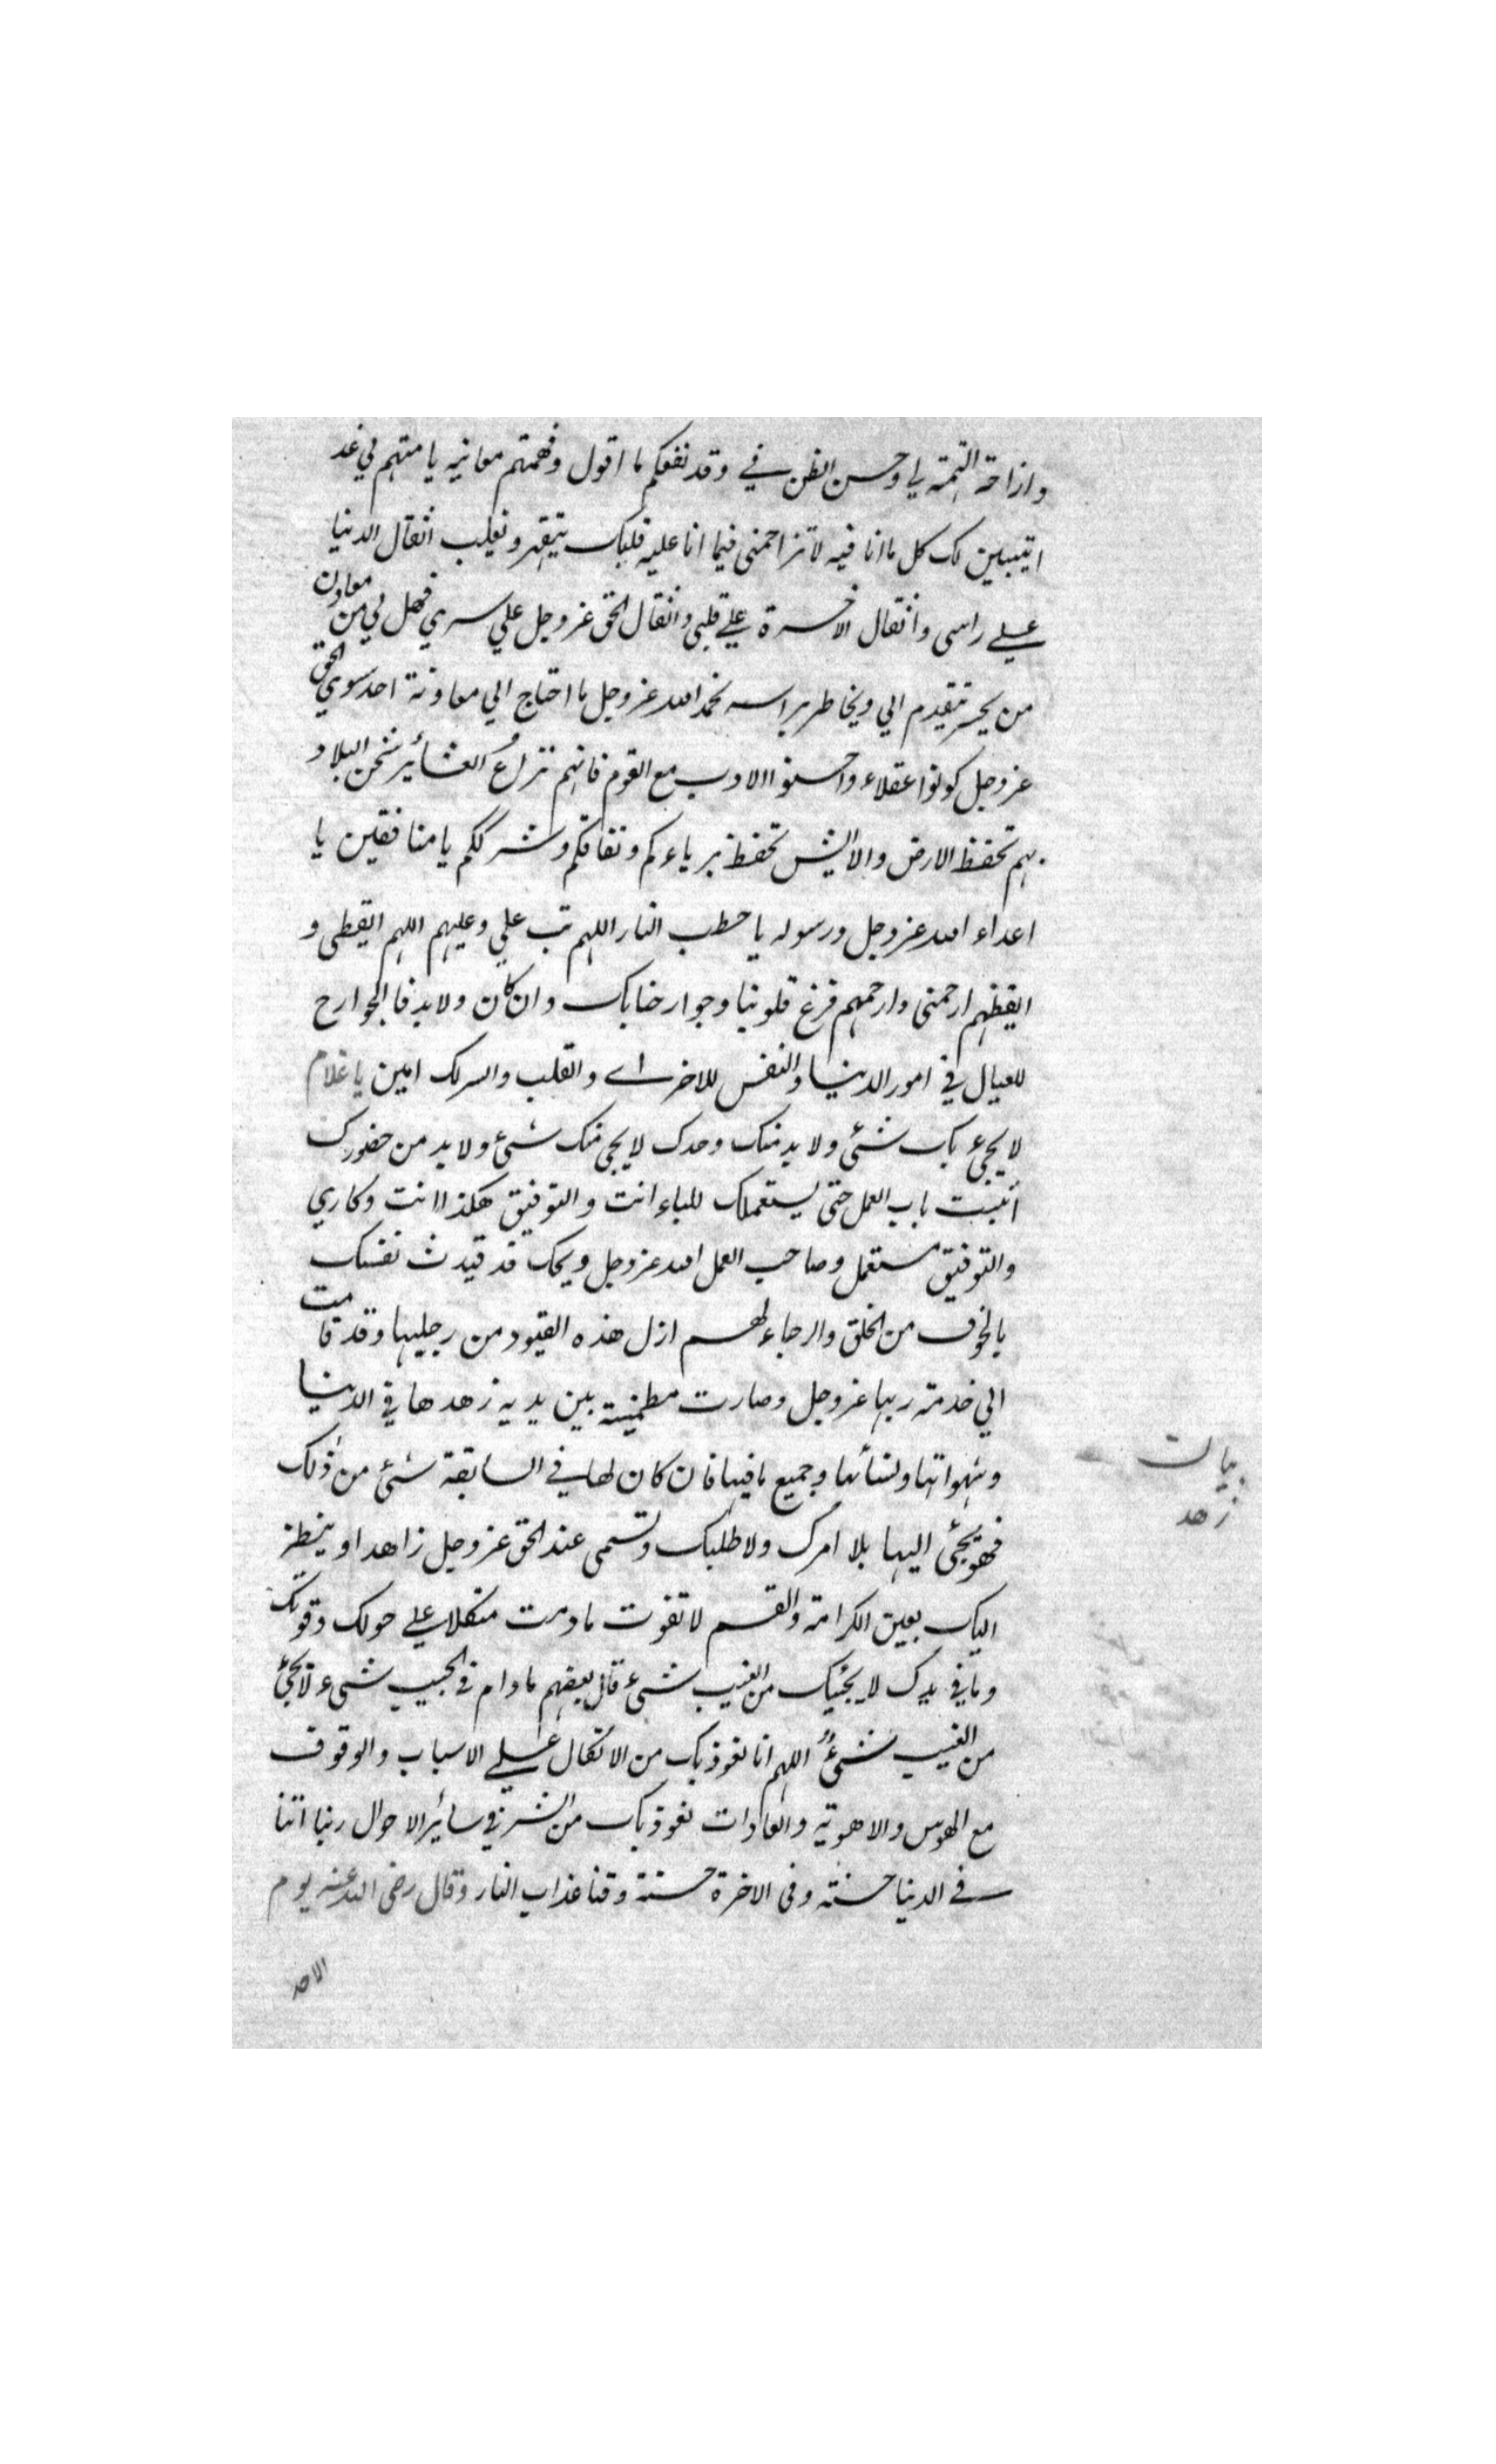 وازاحة التهمة لي وحسن الظن في وقد نفعكم ما اقول وفهمتم معانيه يا متهم لي غد
اتيبين لك كل ما انا فيه لا تزاحمني فيما انا عليه قلبك يتقهر ويغلب اثقال الدنيا
علي راسي واثقال الاخرة علي قلبي واثقال الحق عز وجل علي سري فهل لي من معاون
من يحسر تقدم الي ويخاطر براسه بحمد الله عز وجل ما احتاج الي معاونة احد سوي الحق
عز وجل كونوا عقلاء واحسنوا الادب مع القوم فانهم نزاع العشائر شحن البلاد
بهم تحفظ الارض والا ايش تحفظ برياءكم ونفاقكم وشرككم يا منافقين يا
اعداء الله عز وجل ورسوله يا حطب النار اللهم تب علي وعليهم اللهم ايقظني و
ايقظهم ارحمني وارحمهم فرغ قلوبنا وجوارحنا بك وان كان ولا بد فالجوارح
للعيال في امور الدنيا والنفس للاخراي والقلب والسر لك امين يا غلام
لا يجيء بك شئ ولا بد منك وحدك لا يجي منك شئ ولا بد من حضورك
اثبت باب العمل حتي يستعملك للبناء انت والتوفيق هكذا انت وكاري
والتوفيق مستعمل وصاحب العمل الله عز وجل ويحك قد قيدت نفسك
بالخوف من الخلق والرجاء لهم ازل هذه القيود من رجليها وقد قامت
الي خدمة ربها عز وجل وصارت مطمئنة بين يديه زهدها في الدنيا
وشهواتها ونسائها وجميع ما فيها فان كان لها في السابقة شئ من ذلك
فهو يجئ اليها بلا امرك ولا طلبك وتسمي عند الحق عز وجل زاهدا وينظر
اليك بعين الكرامة والقسم لا تفوت ما دمت متكلا علي حولك وقوتك
وما في يدك لا يجئيك من الغيب شئ قال بعضهم ما دام في الجيب شئ لا يجئ
من الغيب شئ اللهم انا نعوذ بك من الاتكال علي الاسباب والوقوف
مع الهوس والاهوية والعادات نعوذ بك من الشر في سائر الاحوال ربنا اتنا
في الدنيا حسنة وفي الاخرة حسنة وقنا عذاب النار وقال رضي الله عنه يوم
الاحد
بيان
زهد